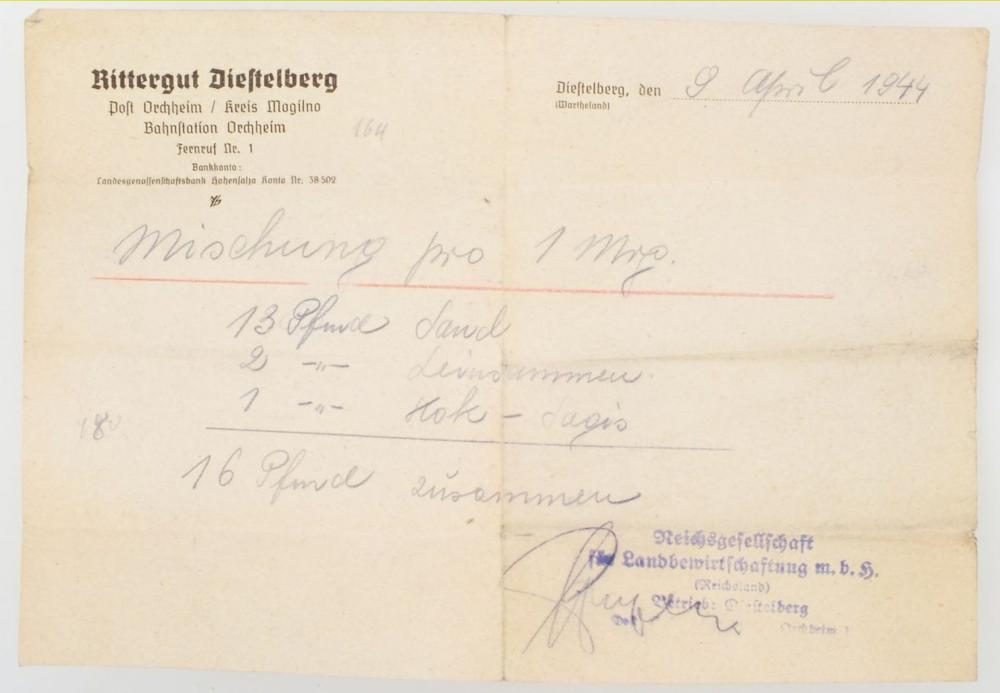 Rittergut Diestelberg
Post Orchheim / Kreis Mogilno
Bahnstation Orchheim
Fernruf Nr. 1
Bankkonto:
Landesgenossenschaftsbank Hohensalza Konto Nr. 38 502
164
Diestelberg, den 9 April 1944
(Wartheland)
Mischung pro 1 Mrg.
13 Pfund Sand
2 -"- Leinsammen
1 -"- Kok - Sagis
180
16 Pfund zusammen
Reichsgesellschaft
für Landbewirtschaftung m. b. H.
(Reichsland)
Betrieb: Diestelberg
Orchheim